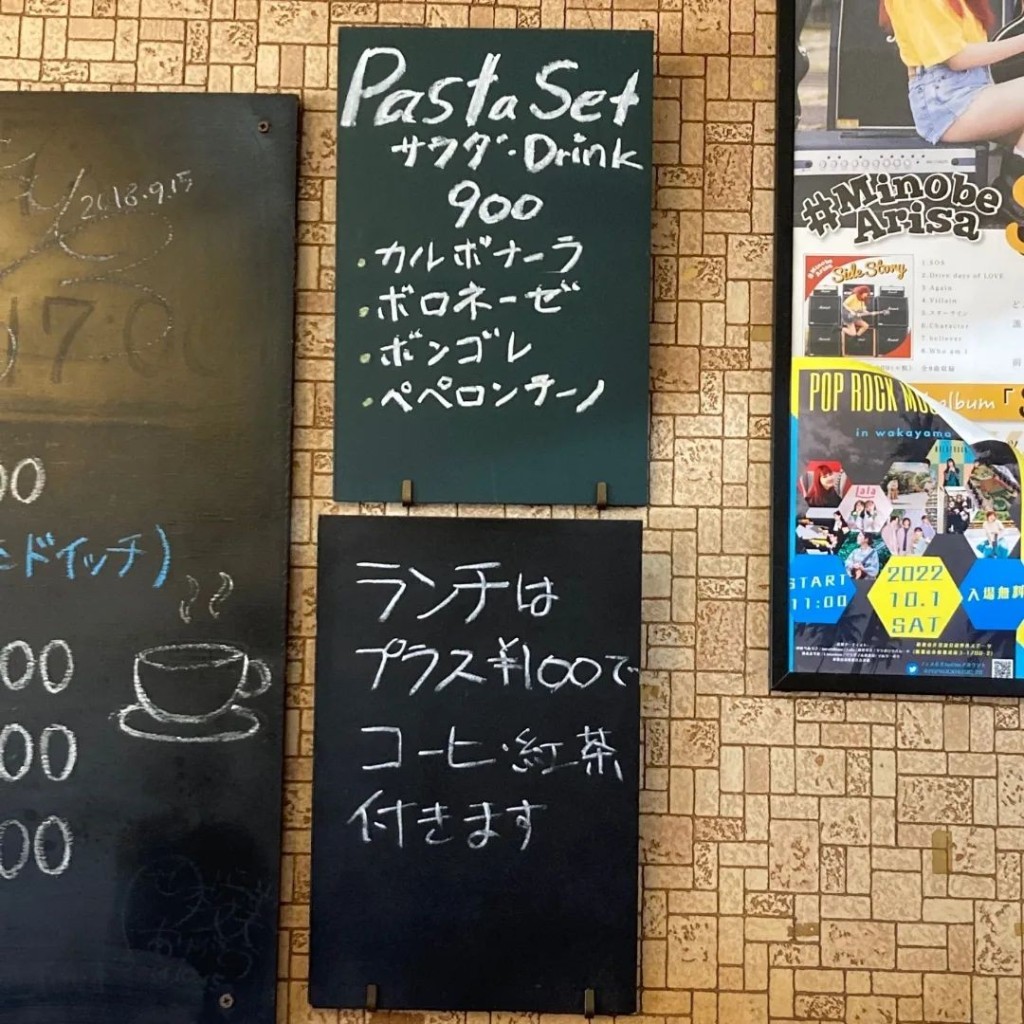 2018.9.15
17:00
00
ドイッチ)
00
00
00
Pasta Set
サラダ・Drink
900
・カルボナーラ
・ボロネーゼ
・ボンゴレ
・ペペロンチーノ
ランチは
プラス¥100で
コーヒ・紅茶
付きます
#Minobe
Arisa
Side Story
1.SOS
2.Drive days of LOVE
3.Again
4.Villain
5.スターマイン
6.Character
7.believer
8.Who am I
全8曲収録
album「
POP ROCK
in wakayama
Lala
START
11:00
2022
10.1
SAT
入場無料